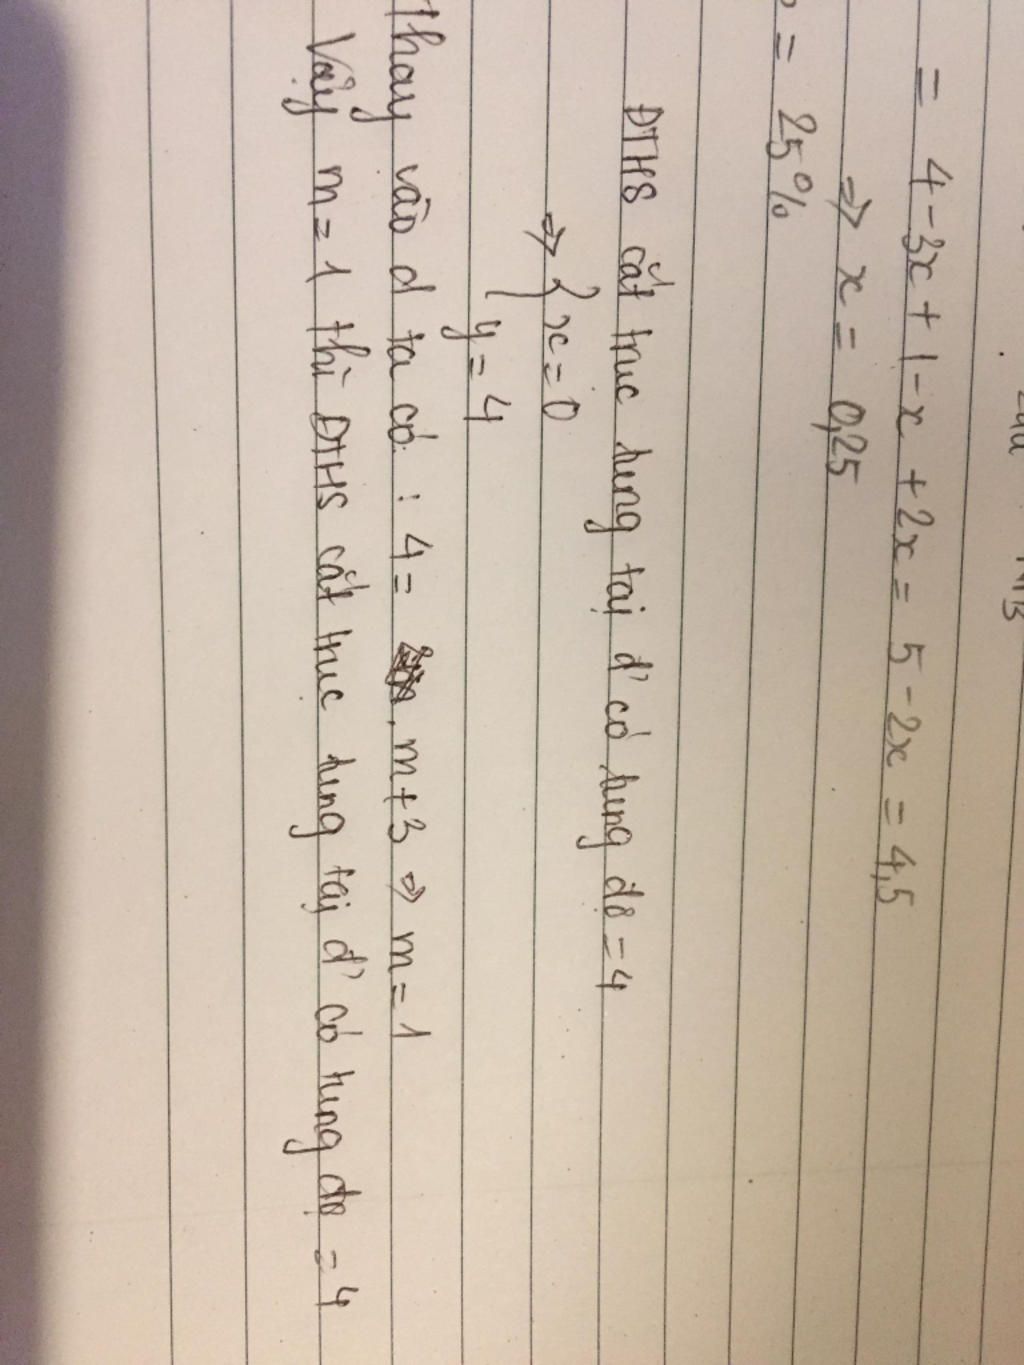 = 4 - 3x + 1 - x + 2x = 5 - 2x = 4,5
⇒ x = 0,25
= 25%
ĐTHS cắt trục tung tại đ' có tung độ = 4
⇒ { x = 0
y = 4
Thay vào d ta có : 4 = m + 3 ⇒ m = 1
Vậy m = 1 thì ĐTHS cắt trục tung tại đ' có tung độ = 4